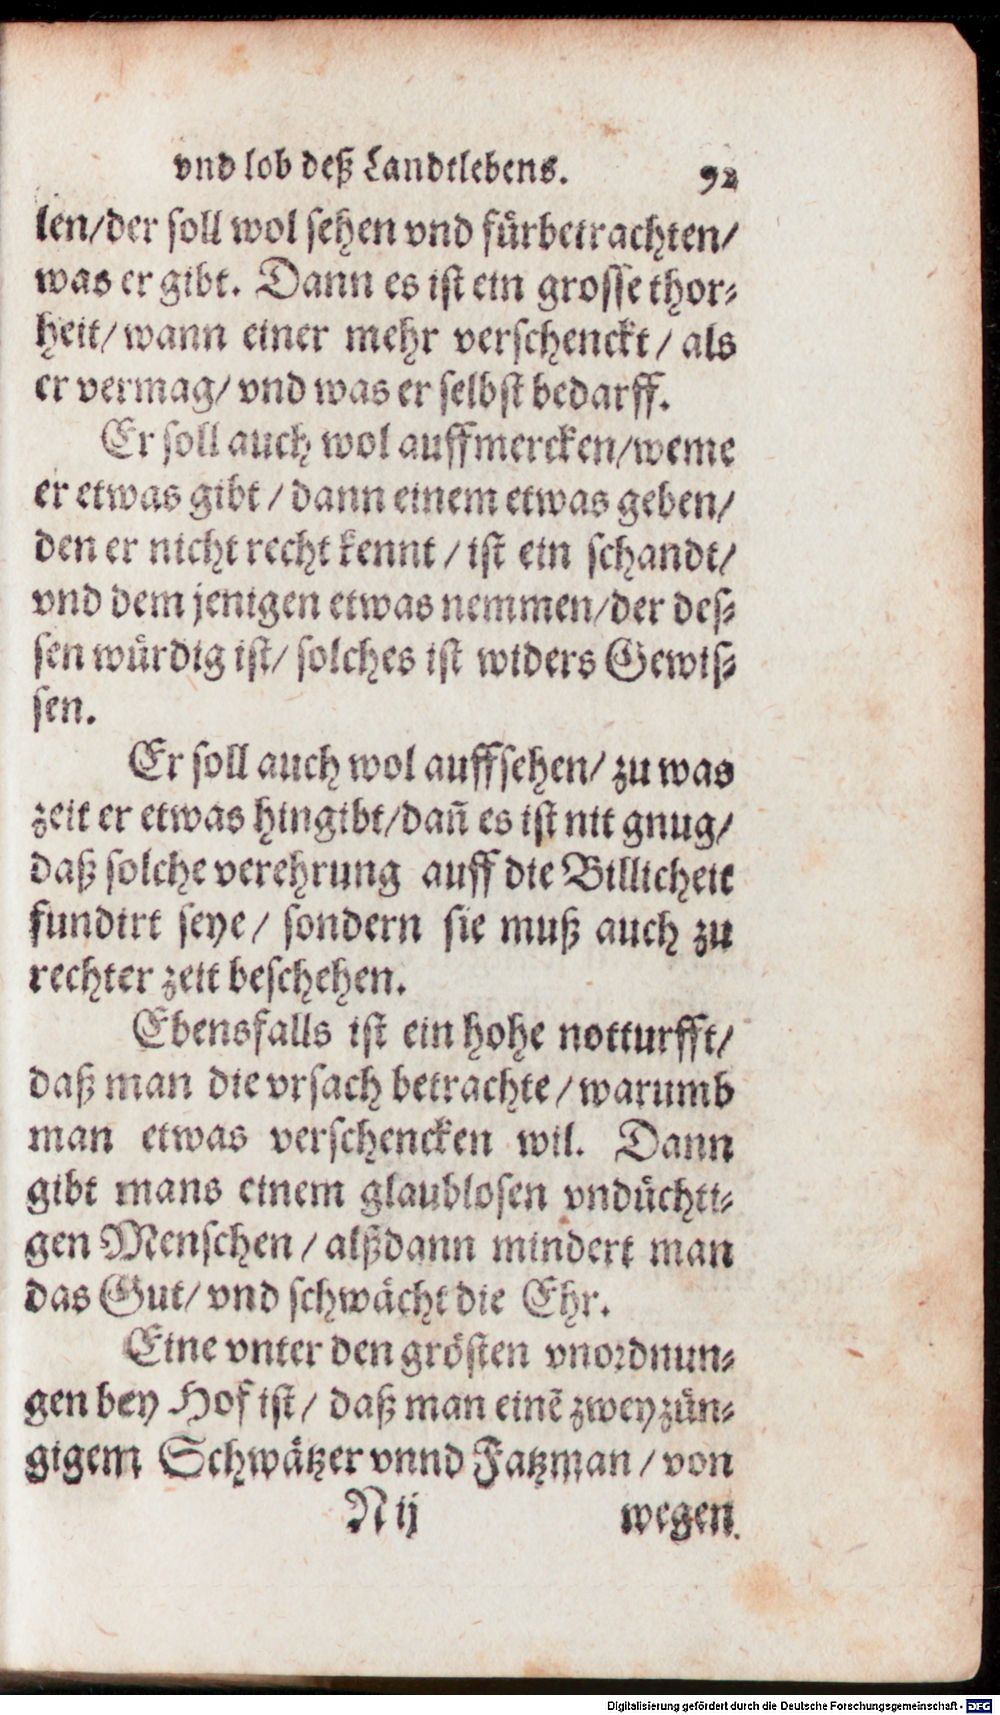 vnd lob deß Landtlebens. 92
len/der soll wol sehen vnd fürbetrachten/
was er gibt. Dann es ist ein grosse thor⸗
heit/ wann einer mehr verschenckt / als
er vermag/ vnd was er selbst bedarff.
Er soll auch wol auffmercken/weme
er etwas gibt / dann einem etwas geben/
den er nicht recht kennt / ist ein schandt/
vnd dem jenigen etwas nemmen/der des⸗
sen würdig ist/ solches ist widers Gewis⸗
sen.
Er soll auch wol auffsehen/ zu was
zeit er etwas hingibt/dañ es ist nit gnug/
daß solche verehrung auff die Billicheit
fundirt seye / sondern sie muß auch zu
rechter zeit beschehen.
Ebensfalls ist ein hohe notturfft/
daß man die vrsach betrachte / warumb
man etwas verschencken wil. Dann
gibt mans einem glaublosen vndüchti⸗
gen Menschen / alßdann mindert man
das Gut/ vnd schwächt die Ehr.
Eine vnter den grösten vnordnun⸗
gen bey Hof ist / daß man einẽ zweyzün⸗
gigem Schwätzer vnnd Fatzman / von
N ij wegen
Digitalisierung gefördert durch die Deutsche Forschungsgemeinschaft - DFG